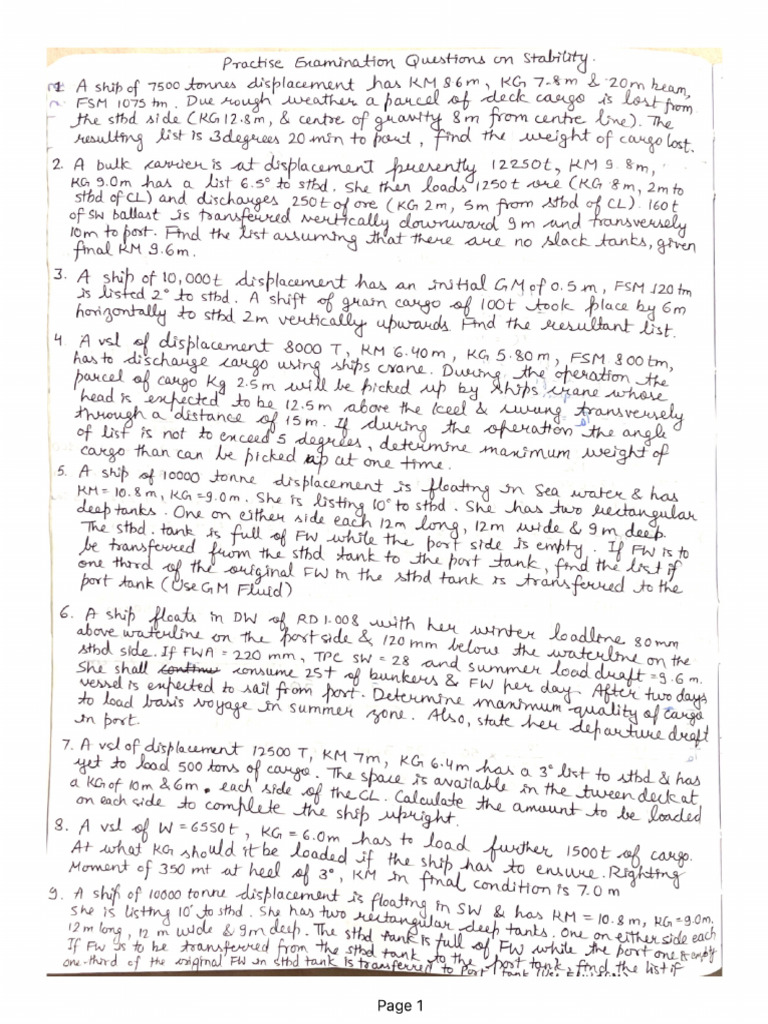 Practise Examination Questions on Stability.
1. A ship of 7500 tonnes displacement has KM 8.6m, KG 7.8m & 20m beam,
FSM 1075 tm. Due rough weather a parcel of deck cargo is lost from
the stbd side (KG 12.8m, & centre of gravity 8m from centre line). The
resulting list is 3 degrees 20 min to port, find the weight of cargo lost.
2. A bulk carrier is at displacement presently 12250t, KM 9.8m,
KG 9.0m has a list 6.5° to stbd. She then loads 1250t ore (KG 8m, 2m to
stbd of CL) and discharges 250t of ore (KG 2m, 5m from stbd of CL). 160t
of SW ballast is transferred vertically downward 9m and transversely
10m to port. Find the list assuming that there are no slack tanks, given
final KM 9.6m.
3. A ship of 10,000t displacement has an initial GM of 0.5m, FSM 120tm
is listed 2° to stbd. A shift of grain cargo of 100t took place by 6m
horizontally to stbd 2m vertically upwards. Find the resultant list.
4. A vsl of displacement 8000 T, KM 6.40m, KG 5.80m, FSM 800tm,
has to discharge cargo using ships crane. During the operation the
parcel of cargo Kg 2.5m will be picked up by ships crane whose
head is expected to be 12.5m above the keel & swung transversely
through a distance of 15m. If during the operation the angle
of list is not to exceed 5 degrees, determine maximum weight of
cargo than can be picked up at one time.
5. A ship of 10000 tonne displacement is floating in Sea water & has
KM = 10.8m, KG = 9.0m. She is listing 10° to stbd. She has two rectangular
deep tanks. One on either side each 12m long, 12m wide & 9m deep.
The stbd. tank is full of FW while the port side is empty. If FW is to
be transferred from the stbd tank to the port tank, find the list if
one third of the original FW in the stbd tank is transferred to the
port tank (Use GM Fluid)
6. A ship floats in DW of RD 1.008 with her winter loadline 80mm
above waterline on the port side & 120 mm below the waterline on the
stbd side. If FWA = 220 mm, TPC SW = 28 and summer load draft = 9.6m.
She shall continue consume 25t of bunkers & FW per day. After two days
vessel is expected to sail from port. Determine maximum quality of cargo
to load basis voyage in summer zone. Also, state her departure draft
in port.
7. A vsl of displacement 12500 T, KM 7m, KG 6.4m has a 3° list to stbd & has
yet to load 500 tons of cargo. The space is available in the tween deck at
a KG of 10m & 6m. each side of the CL. Calculate the amount to be loaded
on each side to complete the ship upright.
8. A vsl of W = 6550t, KG = 6.0m has to load further 1500t of cargo.
At what KG should it be loaded if the ship has to ensure. Righting
Moment of 350 mt at heel of 3°, KM in final condition is 7.0m
9. A ship of 10000 tonne displacement is floating in SW & has KM = 10.8m, KG = 9.0m.
She is listing 10° to stbd. She has two rectangular deep tanks. One on either side each
12m long, 12m wide & 9m deep. The stbd tank is full of FW while the port one is empty
If FW is to be transferred from the stbd tank to the port tank, find the list if
one-third of the original FW in stbd tank is transferred to Port tank
Page 1